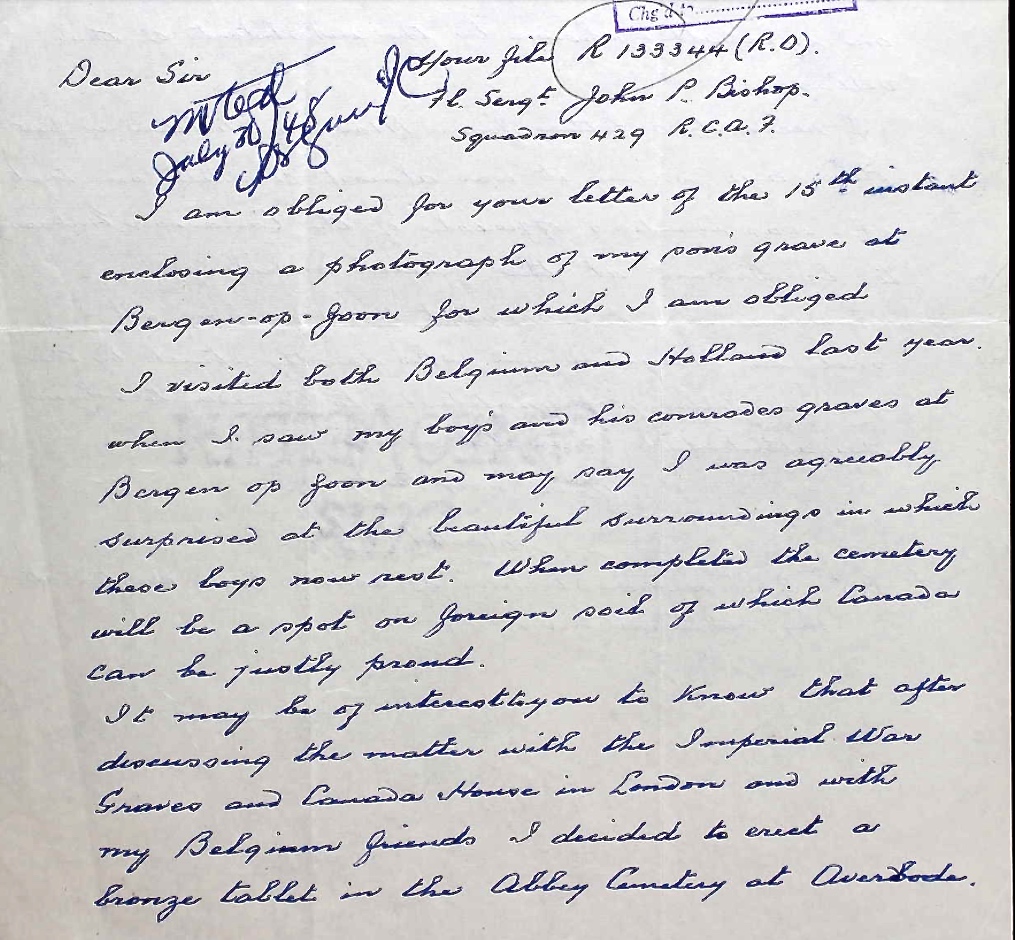 Chg'd to
Your file R 133344 (R.O).
Dear Sir
Fl. Sergt. John P. Bishop.
Squadron 429 R.C.A.F.
noted
July 20/48
I am obliged for your letter of the 15th instant
enclosing a photograph of my son's grave at
Bergen-op-Zoon for which I am obliged
I visited both Belgium and Holland last year.
when I saw my boy's and his comrades graves at
Bergen op Zoon and may say I was agreeably
surprised at the beautiful surroundings in which
these boys now rest. When completed the cemetery
will be a spot on foreign soil of which Canada
can be justly proud.
It may be of interest to you to know that after
discussing the matter with the Imperial War
Graves and Canada House in London and with
my Belgium friends I decided to erect a
bronze tablet in the Abbey Cemetery at Averbode.